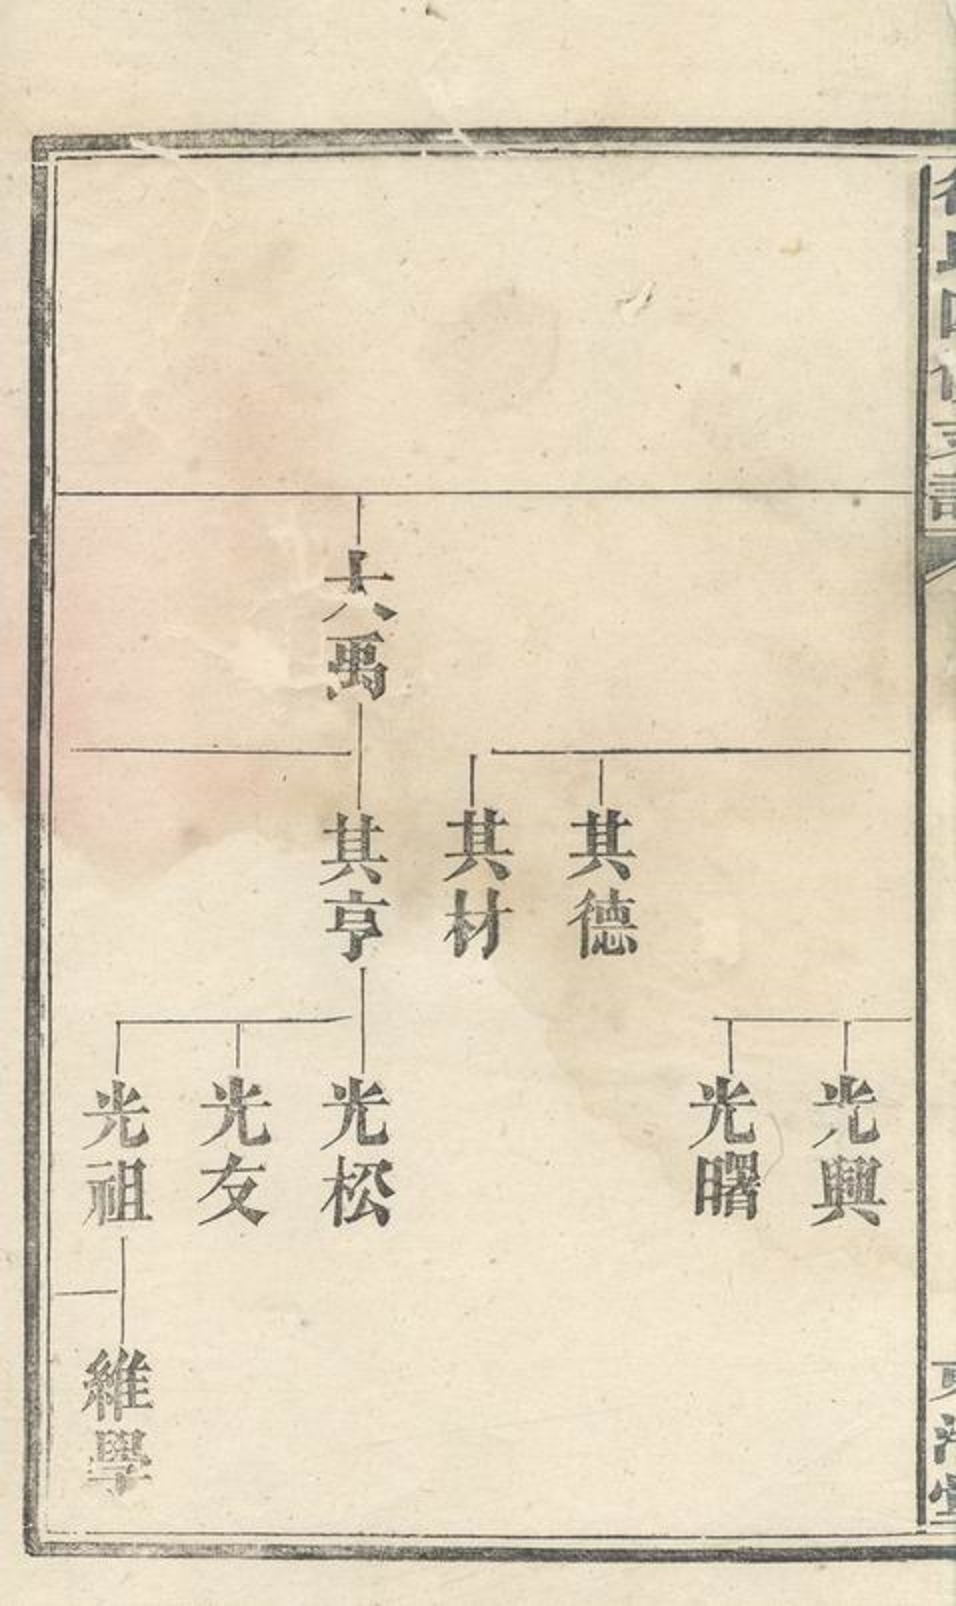 其德
其材
大禹
其亨
光興
光曙
光松
光友
光祖
維學